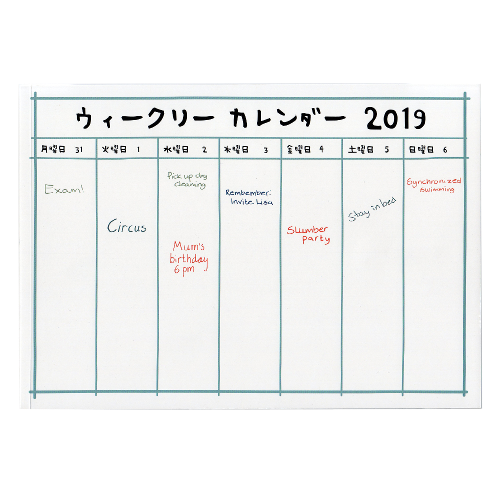 ウィークリー カレンダー 2019
月曜日 31 火曜日 1 水曜日 2 木曜日 3 金曜日 4 土曜日 5 日曜日 6
Exam!
Circus
Pick up dry
cleaning
Mum's
birthday
6pm
Remember:
Invite Lisa
Slumber
party
Stay in bed
Synchronized
swimming